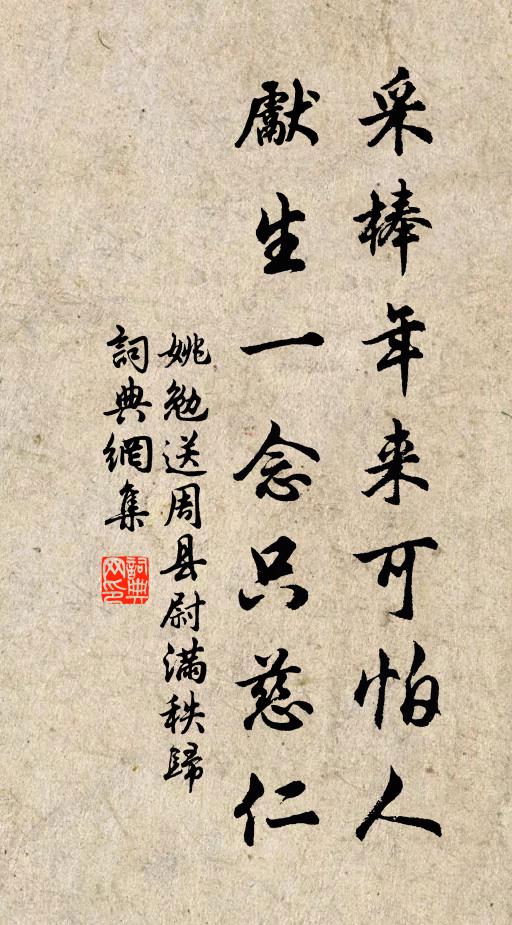 采棒年来可怕人
獻生一念只慈仁
姚勉送周县尉满秩歸
詞典網集
詞典网印